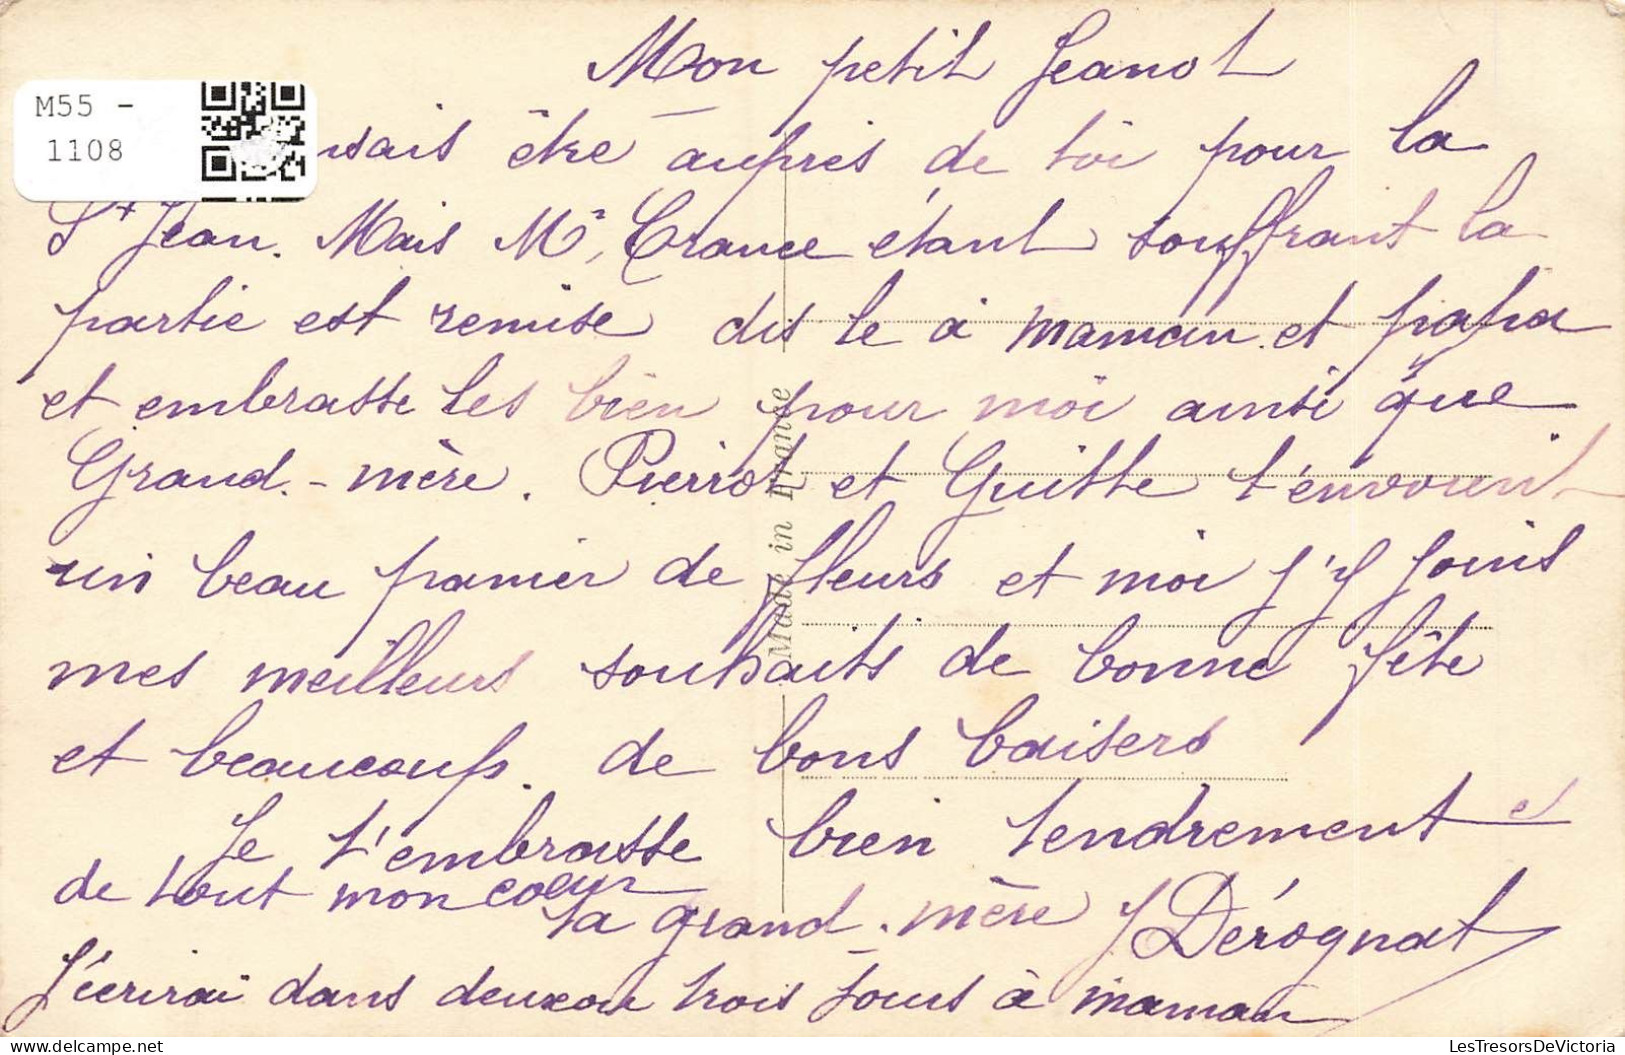 Mon petit Jeanot
M55 -
1108
nsais être auprès de toi pour la
St Jean. Mais Mr, Crance étant souffrant la
partie est remise dis le à maman et papa
et embrasse les bien pour moi ainsi que
Grand-mère. Pierrot et Guitte t'envoient
un beau panier de fleurs et moi j'y joins
mes meilleurs souhaits de bonne fête
et beaucoup de bons baisers
Je t'embrasse bien tendrement et
de tout mon coeur
ta grand-mère J Dérognat
J'écrirai dans deux ou trois jours à maman
Made in France
LesTresorsDeVictoria